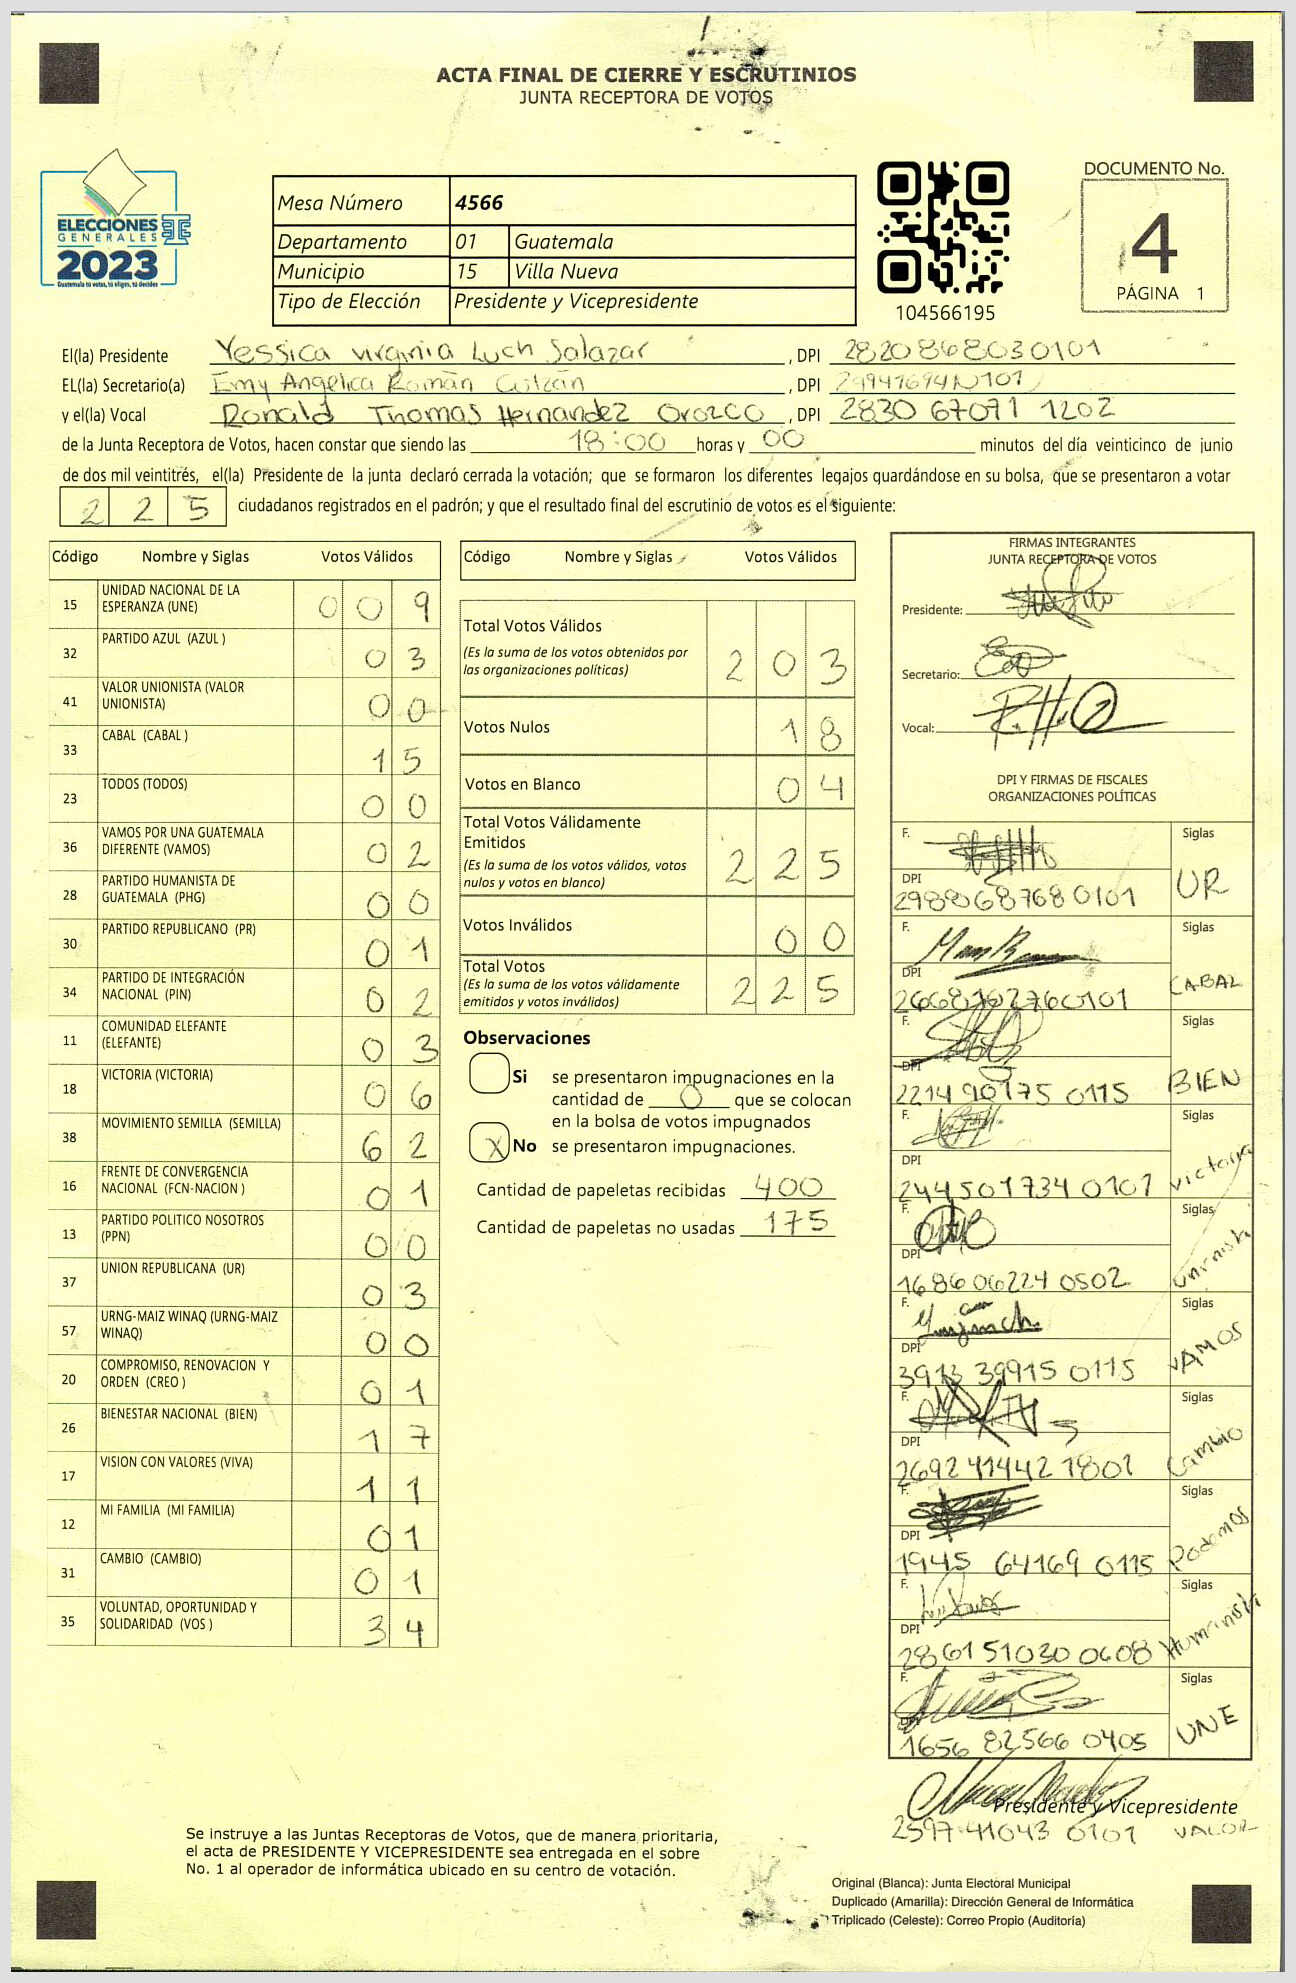 ACTA FINAL DE CIERRE Y ESCRUTINIOS
JUNTA RECEPTORA DE VOTOS
ELECCIONES
GENERALES
2023
Guatemala tú votas, tú eliges, tú decides
Mesa Número 4566
Departamento 01 Guatemala
Municipio 15 Villa Nueva
Tipo de Elección Presidente y Vicepresidente
104566195
DOCUMENTO No.
4
PÁGINA 1
El(la) Presidente Yessica Virginia Luch Salazar , DPI 2820868030101
EL(la) Secretario(a) Emy Angelica Román , DPI
y el(la) Vocal Ronald Thomas Hernandez Orozco , DPI 2830 67071 1202
de la Junta Receptora de Votos, hacen constar que siendo las 18:00 horas y 00 minutos del día veinticinco de junio
de dos mil veintitrés, el(la) Presidente de la junta declaró cerrada la votación; que se formaron los diferentes legajos guardándose en su bolsa, que se presentaron a votar
225 ciudadanos registrados en el padrón; y que el resultado final del escrutinio de votos es el siguiente:
Código Nombre y Siglas Votos Válidos
15 UNIDAD NACIONAL DE LA ESPERANZA (UNE) 0 0 9
32 PARTIDO AZUL (AZUL ) 0 3
41 VALOR UNIONISTA (VALOR UNIONISTA) 0 0
33 CABAL (CABAL ) 1 5
23 TODOS (TODOS) 0 0
36 VAMOS POR UNA GUATEMALA DIFERENTE (VAMOS) 0 2
28 PARTIDO HUMANISTA DE GUATEMALA (PHG) 0 0
30 PARTIDO REPUBLICANO (PR) 0 1
34 PARTIDO DE INTEGRACIÓN NACIONAL (PIN) 0 2
11 COMUNIDAD ELEFANTE (ELEFANTE) 0 3
18 VICTORIA (VICTORIA) 0 6
38 MOVIMIENTO SEMILLA (SEMILLA) 6 2
16 FRENTE DE CONVERGENCIA NACIONAL (FCN-NACION ) 0 1
13 PARTIDO POLITICO NOSOTROS (PPN) 0 0
37 UNION REPUBLICANA (UR) 0 3
57 URNG-MAIZ WINAQ (URNG-MAIZ WINAQ) 0 0
20 COMPROMISO, RENOVACION Y ORDEN (CREO ) 0 1
26 BIENESTAR NACIONAL (BIEN) 1 7
17 VISION CON VALORES (VIVA) 1 1
12 MI FAMILIA (MI FAMILIA) 0 1
31 CAMBIO (CAMBIO) 0 1
35 VOLUNTAD, OPORTUNIDAD Y SOLIDARIDAD (VOS ) 3 4
Código Nombre y Siglas Votos Válidos
Total Votos Válidos 2 0 3
(Es la suma de los votos obtenidos por
las organizaciones políticas)
Votos Nulos 1 8
Votos en Blanco 0 4
Total Votos Válidamente
Emitidos 2 2 5
(Es la suma de los votos válidos, votos
nulos y votos en blanco)
Votos Inválidos 0 0
Total Votos 2 2 5
(Es la suma de los votos válidamente
emitidos y votos inválidos)
Observaciones
Si se presentaron impugnaciones en la
cantidad de 0 que se colocan
en la bolsa de votos impugnados
X No se presentaron impugnaciones.
Cantidad de papeletas recibidas 400
Cantidad de papeletas no usadas 175
FIRMAS INTEGRANTES
JUNTA RECEPTORA DE VOTOS
Presidente:
Secretario:
Vocal:
DPI Y FIRMAS DE FISCALES
ORGANIZACIONES POLÍTICAS
F. Siglas
DPI UR
2988068768 0101
F. Siglas
DPI CABAL
F. Siglas
DPI BIEN
2214 90175 0115
F. Siglas
DPI Victoria
244501734 0101
F. Siglas
DPI Unionista
1686 06224 0502
F. Siglas
DPI VAMOS
3913 39915 0115
F. Siglas
DPI Cambio
2692 41442 1801
F. Siglas
DPI Podemos
1945 64169 0115
F. Siglas
DPI Humanista
286151030 0608
F. Siglas
DPI UNE
1656 82566 0405
Presidente y Vicepresidente
2597 41043 0101 VALOR
Se instruye a las Juntas Receptoras de Votos, que de manera prioritaria,
el acta de PRESIDENTE Y VICEPRESIDENTE sea entregada en el sobre
No. 1 al operador de informática ubicado en su centro de votación.
Original (Blanca): Junta Electoral Municipal
Duplicado (Amarilla): Dirección General de Informática
Triplicado (Celeste): Correo Propio (Auditoría)